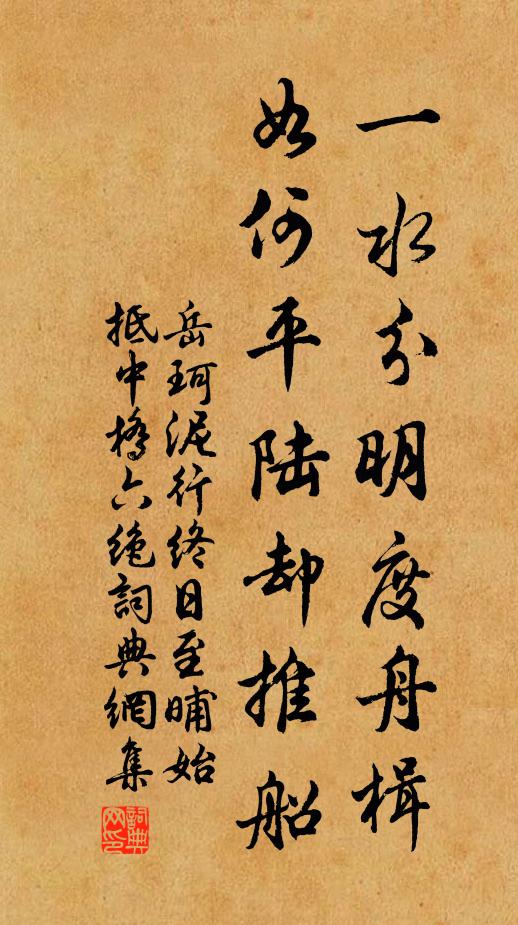 一水分明度舟楫
如何平陆却推船
岳珂泥行终日至晡始
抵中橋六绝詞典網集
詞典网印